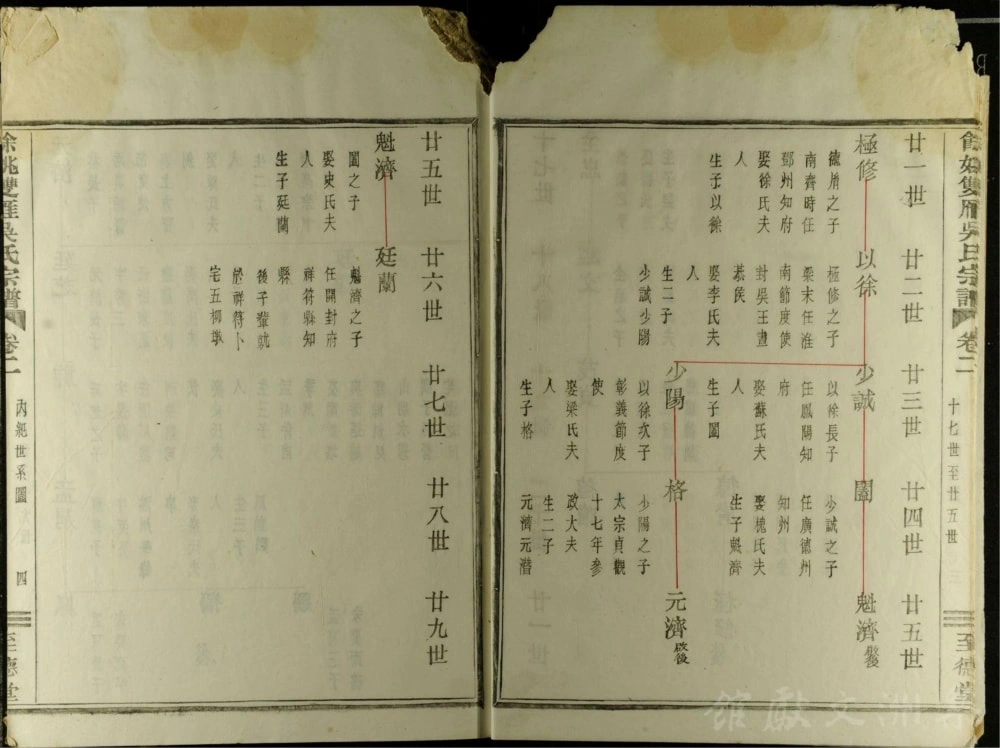 餘姚雙雁吳氏宗譜
卷二
十七世至廿五世
至德堂
廿一世
廿二世
廿三世
廿四世
廿五世
極修
之子
南齊時任
鄧州知府
娶徐氏夫
人
生子以徐
以徐
極修之子
梁末任淮
南節度使
封吳王晝
恭侯
娶李氏夫
人
生二子
少誠少陽
少誠
以徐長子
任鳳陽知
府
娶蘇氏夫
人
生子圖
少誠之子
任廣德州
知州
娶槐氏夫
人
生子魁濟
魁濟
少陽
以徐次子
彰義節度
使
娶梁氏夫
人
生子格
格
少陽之子
太宗貞觀
十七年參
政大夫
生二子
元濟元潛
元濟
啟後
廿五世
廿六世
廿七世
廿八世
廿九世
魁濟
圖之子
娶史氏夫
人
生子廷蘭
廷蘭
魁濟之子
任開封府
祥符縣知
縣
後子輩就
於祥符卜
宅五柳墩
餘姚雙雁吳氏宗譜
卷二
內紀世系圖
四
至德堂
文獻館